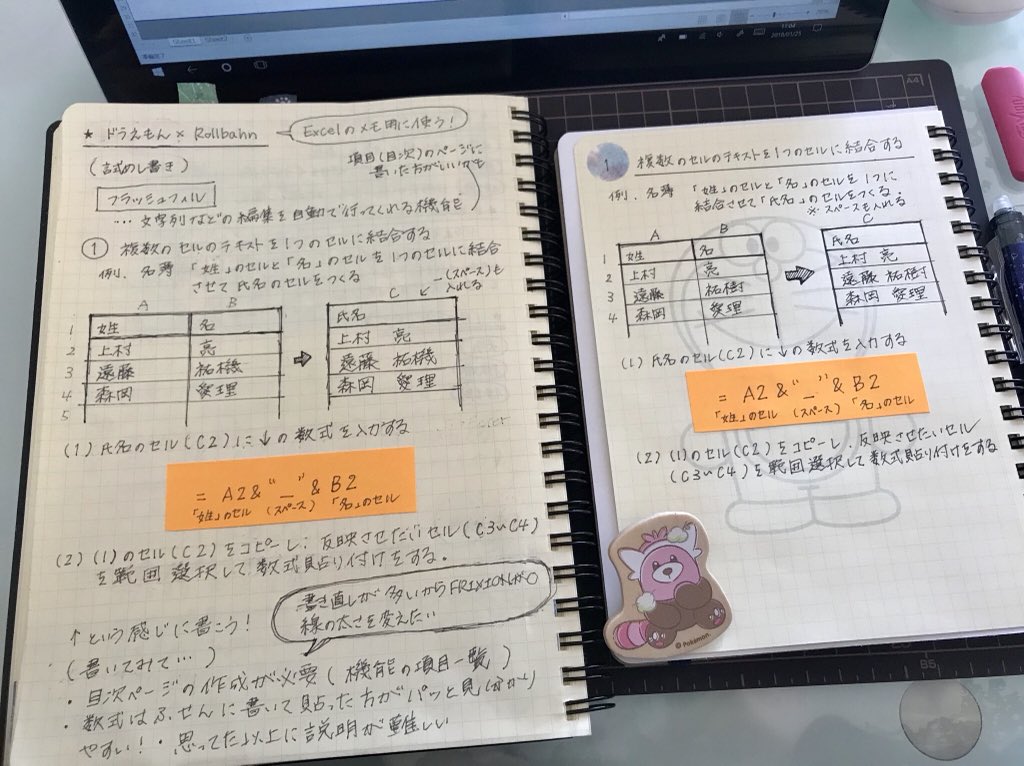 Sheet1 Sheet2
11:04
2018/01/25
A4
★ ドラえもん × Rollbahn
Excelのメモ用に使う!
(試し書き)
項目(目次)のページに
書いた方がいいかも
フラッシュフィル
… 文字列などの編集を自動で行ってくれる機能
① 複数のセルのテキストを1つのセルに結合する
例. 名簿 「姓」のセルと「名」のセルを1つのセルに結合
させて氏名のセルをつくる
(スペース)も
入れる
A B C
1 姓 名 氏名
2 上村 亮 上村 亮
3 遠藤 祐機 遠藤 祐機
4 森岡 愛理 森岡 愛理
5
(1) 氏名のセル(C2)に↓の数式を入力する
= A2&"_"&B2
「姓」のセル (スペース) 「名」のセル
(2) (1)のセル(C2)をコピーし、反映させたいセル(C3〜C4)
を範囲選択して数式貼り付けをする.
書き直しが多いからFRIXIONが○
線の太さを変えたい
↑という感じに書こう!
(書いてみて…)
・目次ページの作成が必要(機能の項目一覧)
・数式はふせんに書いて貼った方がパッと見(分かり)
やすい! ・思ってた以上に説明が難しい
1 複数のセルのテキストを1つのセルに結合する
例. 名簿 「姓」のセルと「名」のセルを1つに
結合させて「氏名」のセルをつくる.
※スペースも入れる
A B C
1 姓 名 氏名
2 上村 亮 上村 亮
3 遠藤 祐樹 遠藤 祐樹
4 森岡 愛理 森岡 愛理
(1) 氏名のセル(C2)に↓の数式を入力する
= A2&"_"&B2
「姓」のセル (スペース) 「名」のセル
(2) (1)のセル(C2)をコピーし、反映させたいセル
(C3〜C4)を範囲選択して数式貼り付けをする
©Pokémon.
B5